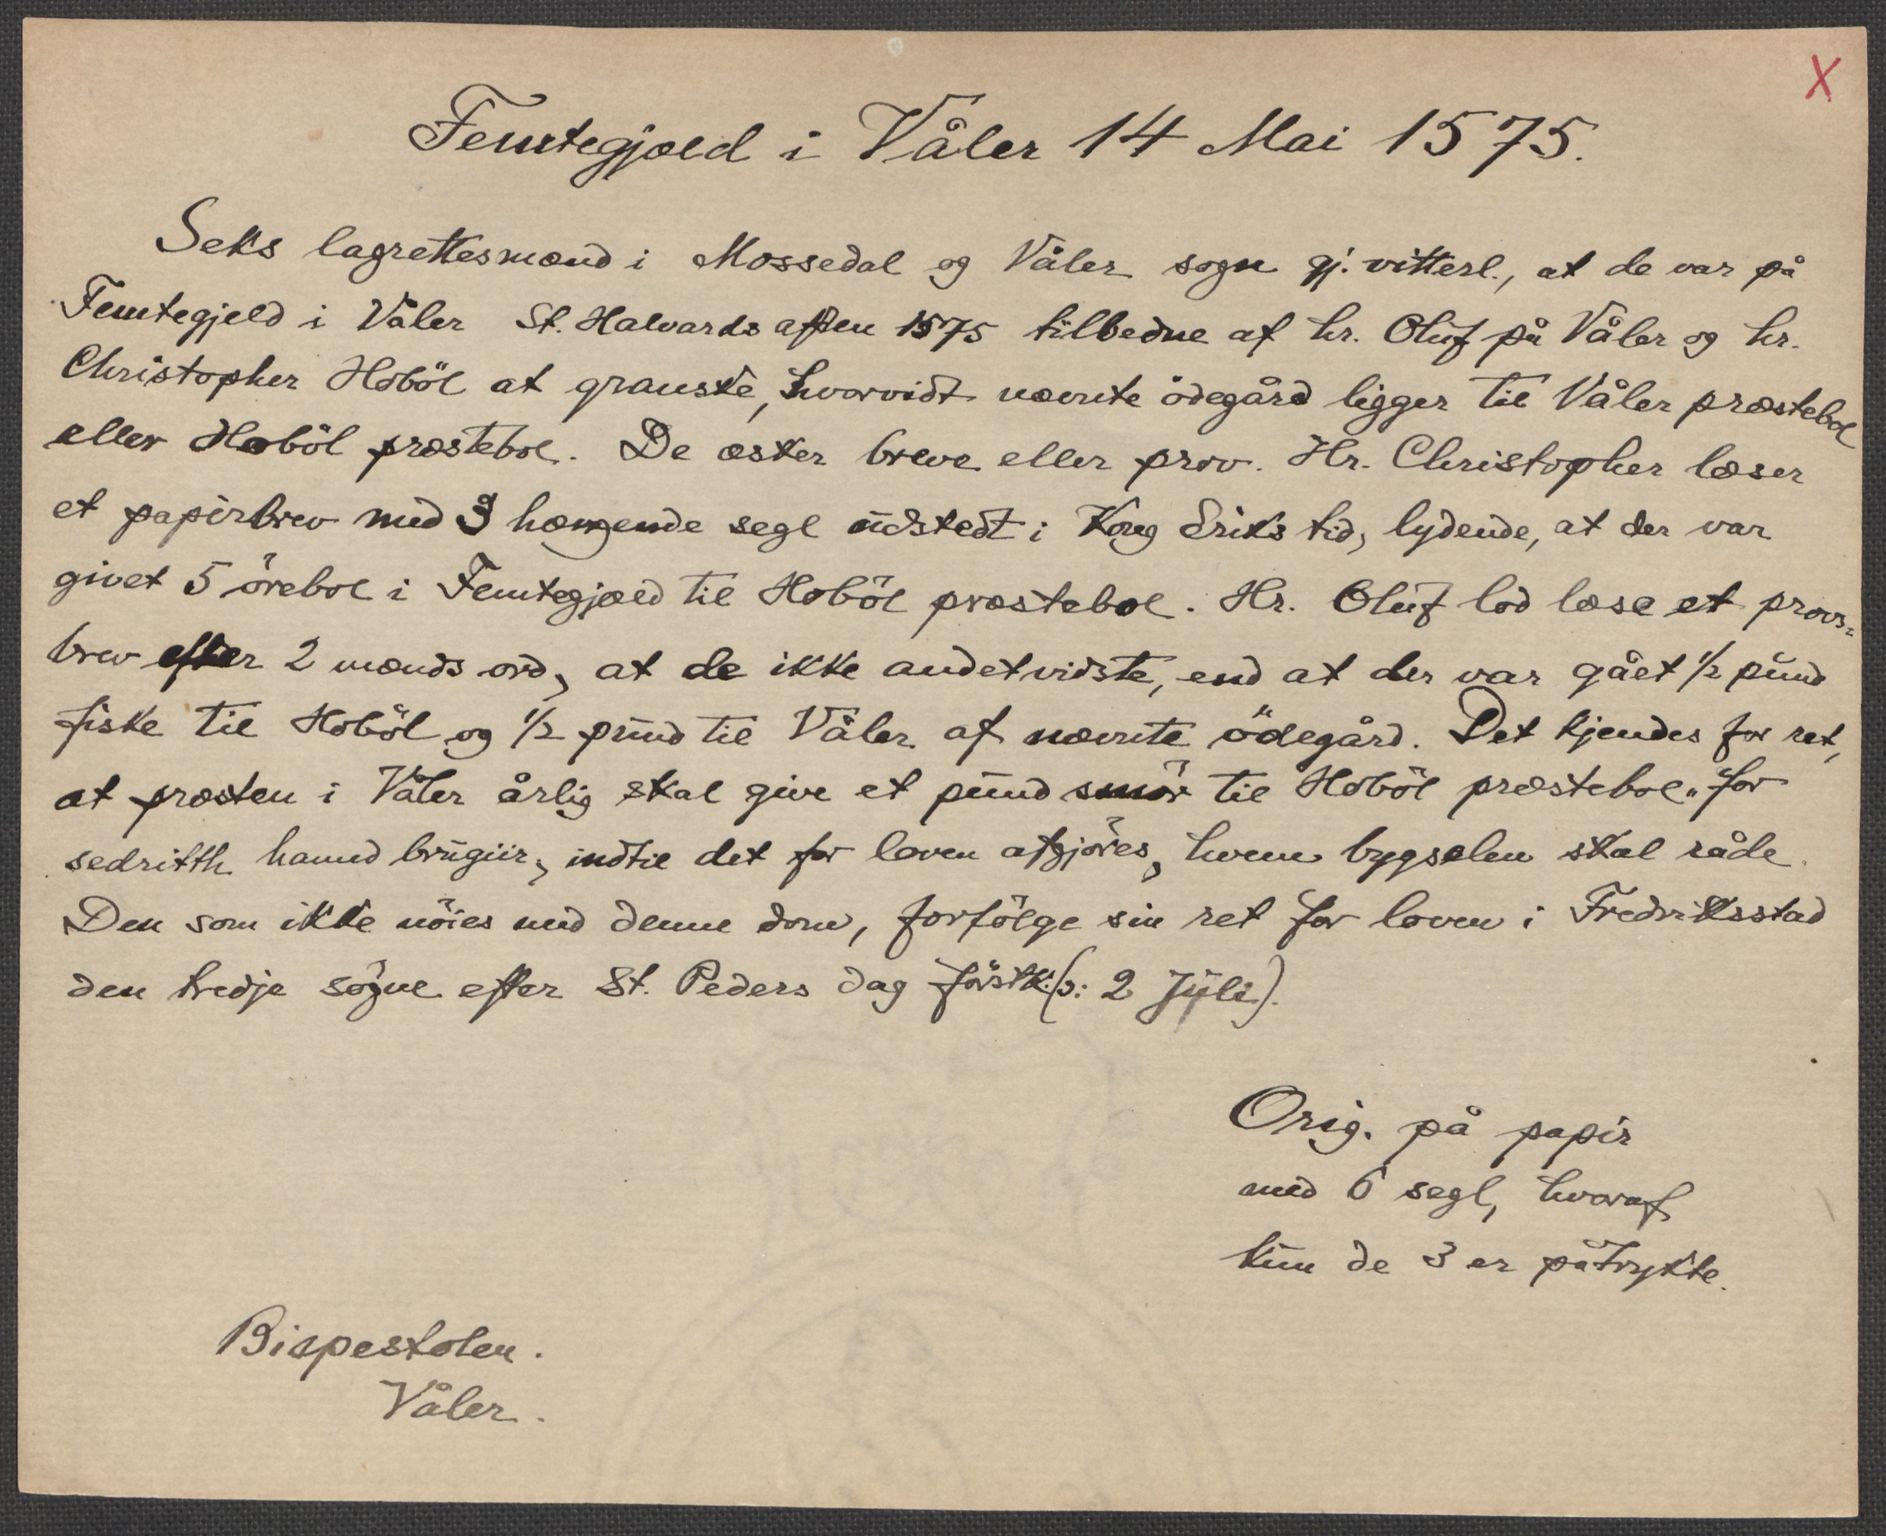 X
Femtegjæld i Våler 14 Mai 1575.
Seks lagrettesmænd i Mossedal og Våler sogn gj. vitterl., at de var på
Femtegjeld i Våler St. Halvards aften 1575 tilbedne af hr. Oluf på Våler og hr.
Christopher Hoböl at granske, hvorvidt nævnte ödegård ligger til Våler præstebol
eller Hoböl præstebol. De æsker breve eller prov. Hr. Christopher læser
et papirbrev med 3 hængende segl udstedt i Kong Eriks tid, lydende, at der var
givet 5 örebol i Femtegjæld til Hoböl præstebol. Hr. Oluf lod læse et provs-
brev efter 2 mænds ord, at de ikke andet vidste, end at der var gået 1/2 pund
fiske til Hoböl og 1/2 pund til Våler af nævnte ödegård. Det kjendes for ret,
at præsten i Våler årlig skal give et pund smör til Hoböl præstebol „for
sedritth hamnd brugiir, indtil det for loven afgjöres, hvem bygselen skal råde.
Den som ikke nöies med denne dom, forfölge sin ret for loven i Fredriksstad
den tredje sögne efter St. Peders dag förstk. (ɔ: 2 Juli).
Orig. på papir
med 6 segl, hvoraf
kun de 3 er påtrykte.
Bispestolen.
Våler.